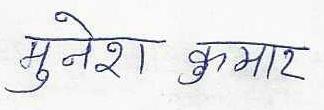 मुनेश कुमार